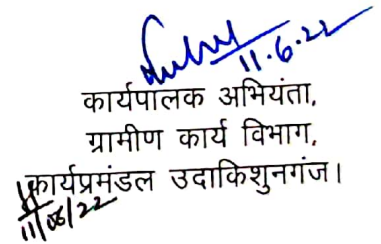 11.6.22
कार्यपालक अभियंता,
ग्रामीण कार्य विभाग,
कार्यप्रमंडल उदाकिशुनगंज।
11/06/22